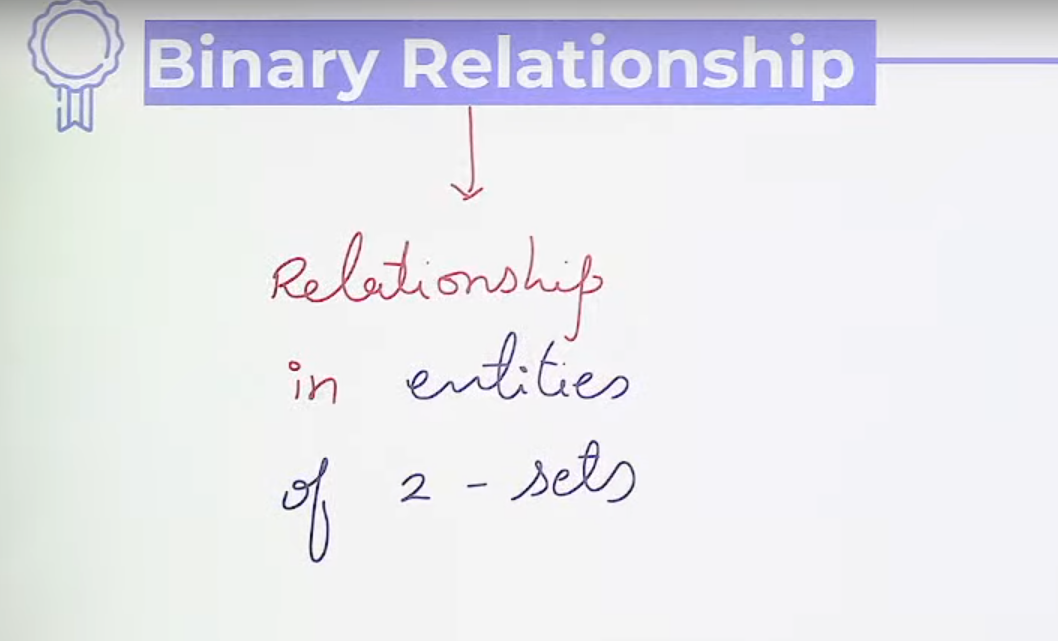 Binary Relationship
Relationship
in entities
of 2 - sets